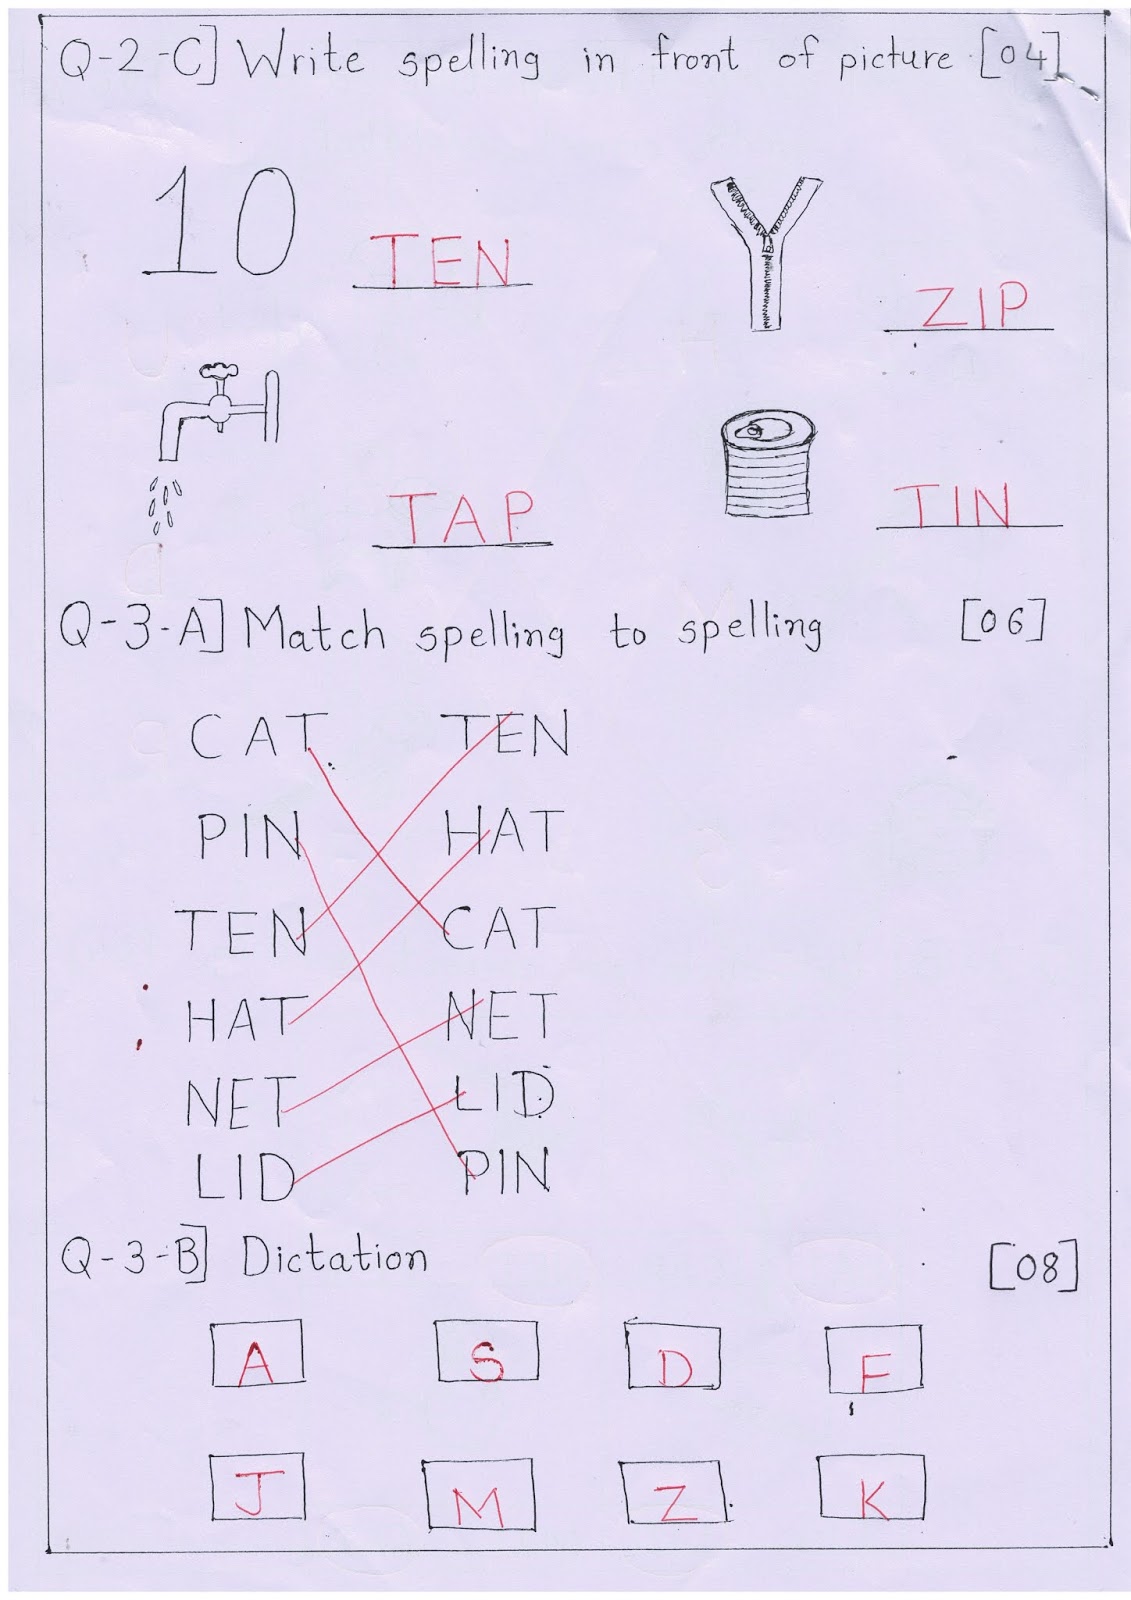 Q-2-C] Write spelling in front of picture [04]
10 TEN ZIP
TAP TIN
Q-3-A] Match spelling to spelling [06]
CAT TEN
PIN HAT
TEN CAT
HAT NET
NET LID
LID PIN
Q-3-B] Dictation [08]
A S D F
J M Z K